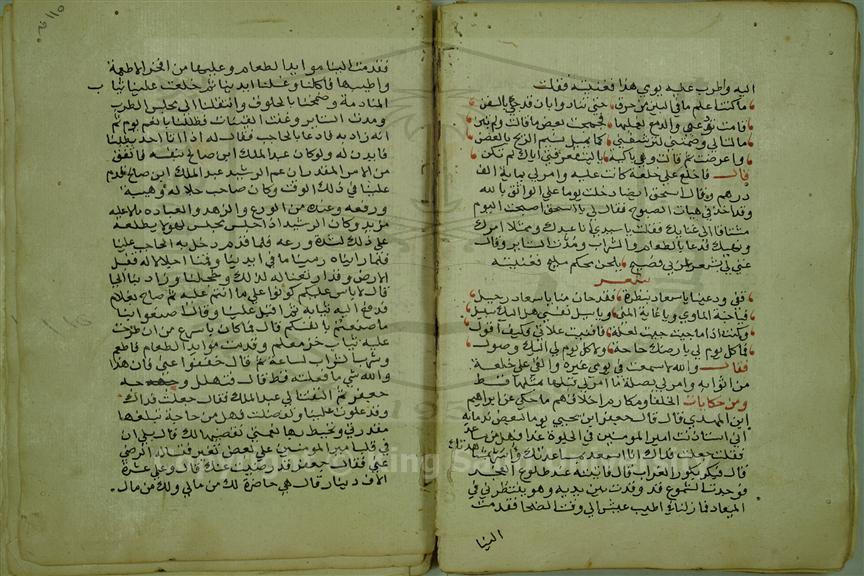 اليه واطرب عليه يومي هذا فغنيته فقلت
ما كنت اعلم ما في البين من حرق حتى تنادوا بان قد جي بالسفن
قامت تودعني والدمع يغلبها فجمجمت بعض ما قالت ولم تبن
مالت الي وضمتني لترشفني كما يميل نسيم الريح بالغصن
واعرضت ثم قالت وهي باكية يا ليت معرفتي اياك لم تكن
قال فاخلع علي خلعة كانت عليه وامر لي بماية الف
درهم وقال اسحق ايضا دخلت يوما على الواثق بالله
فقال لي يا اسحق اصبحت اليوم
مشتاقا الى غنايك فقلت يا سيدي انا عبدك
فدعا بالطعام والشراب ومدت الستاير وقال
غني لي بشعر عربي فصيح بلحن محكم مليح فغنيته
شعر
قفي ودعينا يا سعاد بنظرة فقد حان منا يا سعاد رحيل
فيا جنة الماوي ويا غاية المنى ويا سؤل نفسي هل اليك سبيل
وكنت اذا ما جيت جيت لعلة فافنيت علاتي فكيف اقول
فما كل يوم لي بارضك حاجة وما كل يوم لي اليك وصول
فقال والله لا سمعت في يومي غيره والقى علي خلعة
من اثوابه وامر لي بصلة ما امر لي قبلها بمثلها قط
ومن حكايات الخلفا ومكارم اخلاقهم ما حكي عن ابراهيم
ابن المهدي قال قال جعفر ابن يحيي يوما لبعض ندمايه
اني استاذنت امير المومنين في الخلوة غدا فهل من مساعد
فقلت جعلت فداك انا اسعد بمساعدتك
قال فبكر بكور الغراب قال فاتيته عند طلوع الفجر
فوجدت الشموع قد وقدت بين يديه وهو ينتظرني في
الميعاد فما زلنا في اطيب عيش الي وقت الضحا فقدمت
الينا
فقدمت الينا موايد الطعام وعليها من افخر الاطعمة
واطيبها فاكلنا وغسلنا ايدينا ثم خلعت علينا ثياب
المنادمة وضمخنا بالخلوق وانتقلنا الى مجلس الطرب
ومدت الستاير وغنت القينات فظللنا بانعم يوم ثم
انه دعا بالحاجب فقال له اذا اتا احد يطلبنا
فايدن له ولو كان عبد الملك ابن صالح بنفسه فاتفق
من الامر المقدر ان عم الرشيد عبد الملك ابن صالح قدم
علينا في ذلك الوقت وكان صاحب جلالة وهيبة
ورفعة وعنده من الورع والزهد والعبادة ما لا عليه
مزيد وكان الرشيد اذا جلس مجلس لهو لا يطلعه
على ذلك لشدة ورعه فلما قدم دخل به الحاجب علينا
فلما رايناه رمينا ما في ايدينا وقمنا اجلالا له نقبل
الارض وقد ارتعنا لذلك
قال لا باس عليكم كونوا على ما انتم عليه ثم صاح بغلام
فدفع اليه ثيابه ثم اقبل علينا وقال اصنعوا بنا
ما صنعتم بانفسكم قال فما كان باسرع من ان طرحت
عليه ثياب خز معلم وقدمت موايد الطعام فاطعم
وشرب الشراب لساعته ثم قال خففوا عني فان هذا
والله شي ما فعلته قط قال فتهلل وجه
جعفر ثم التفت الي عبد الملك فقال جعلت فداك
وقد علوت علينا وتفضلت فهل من حاجة تبلغها
مقدرتي وتحيط بها نعمتي فقضيها لك قال بلى ان
في قلب امير المومنين علي بعض تغير فتساله الرضى
عني فقال جعفر قد رضي عنك قال وعلي عشرة
الاف دينار قال هي حاضرة لك من مالي ولك من مال